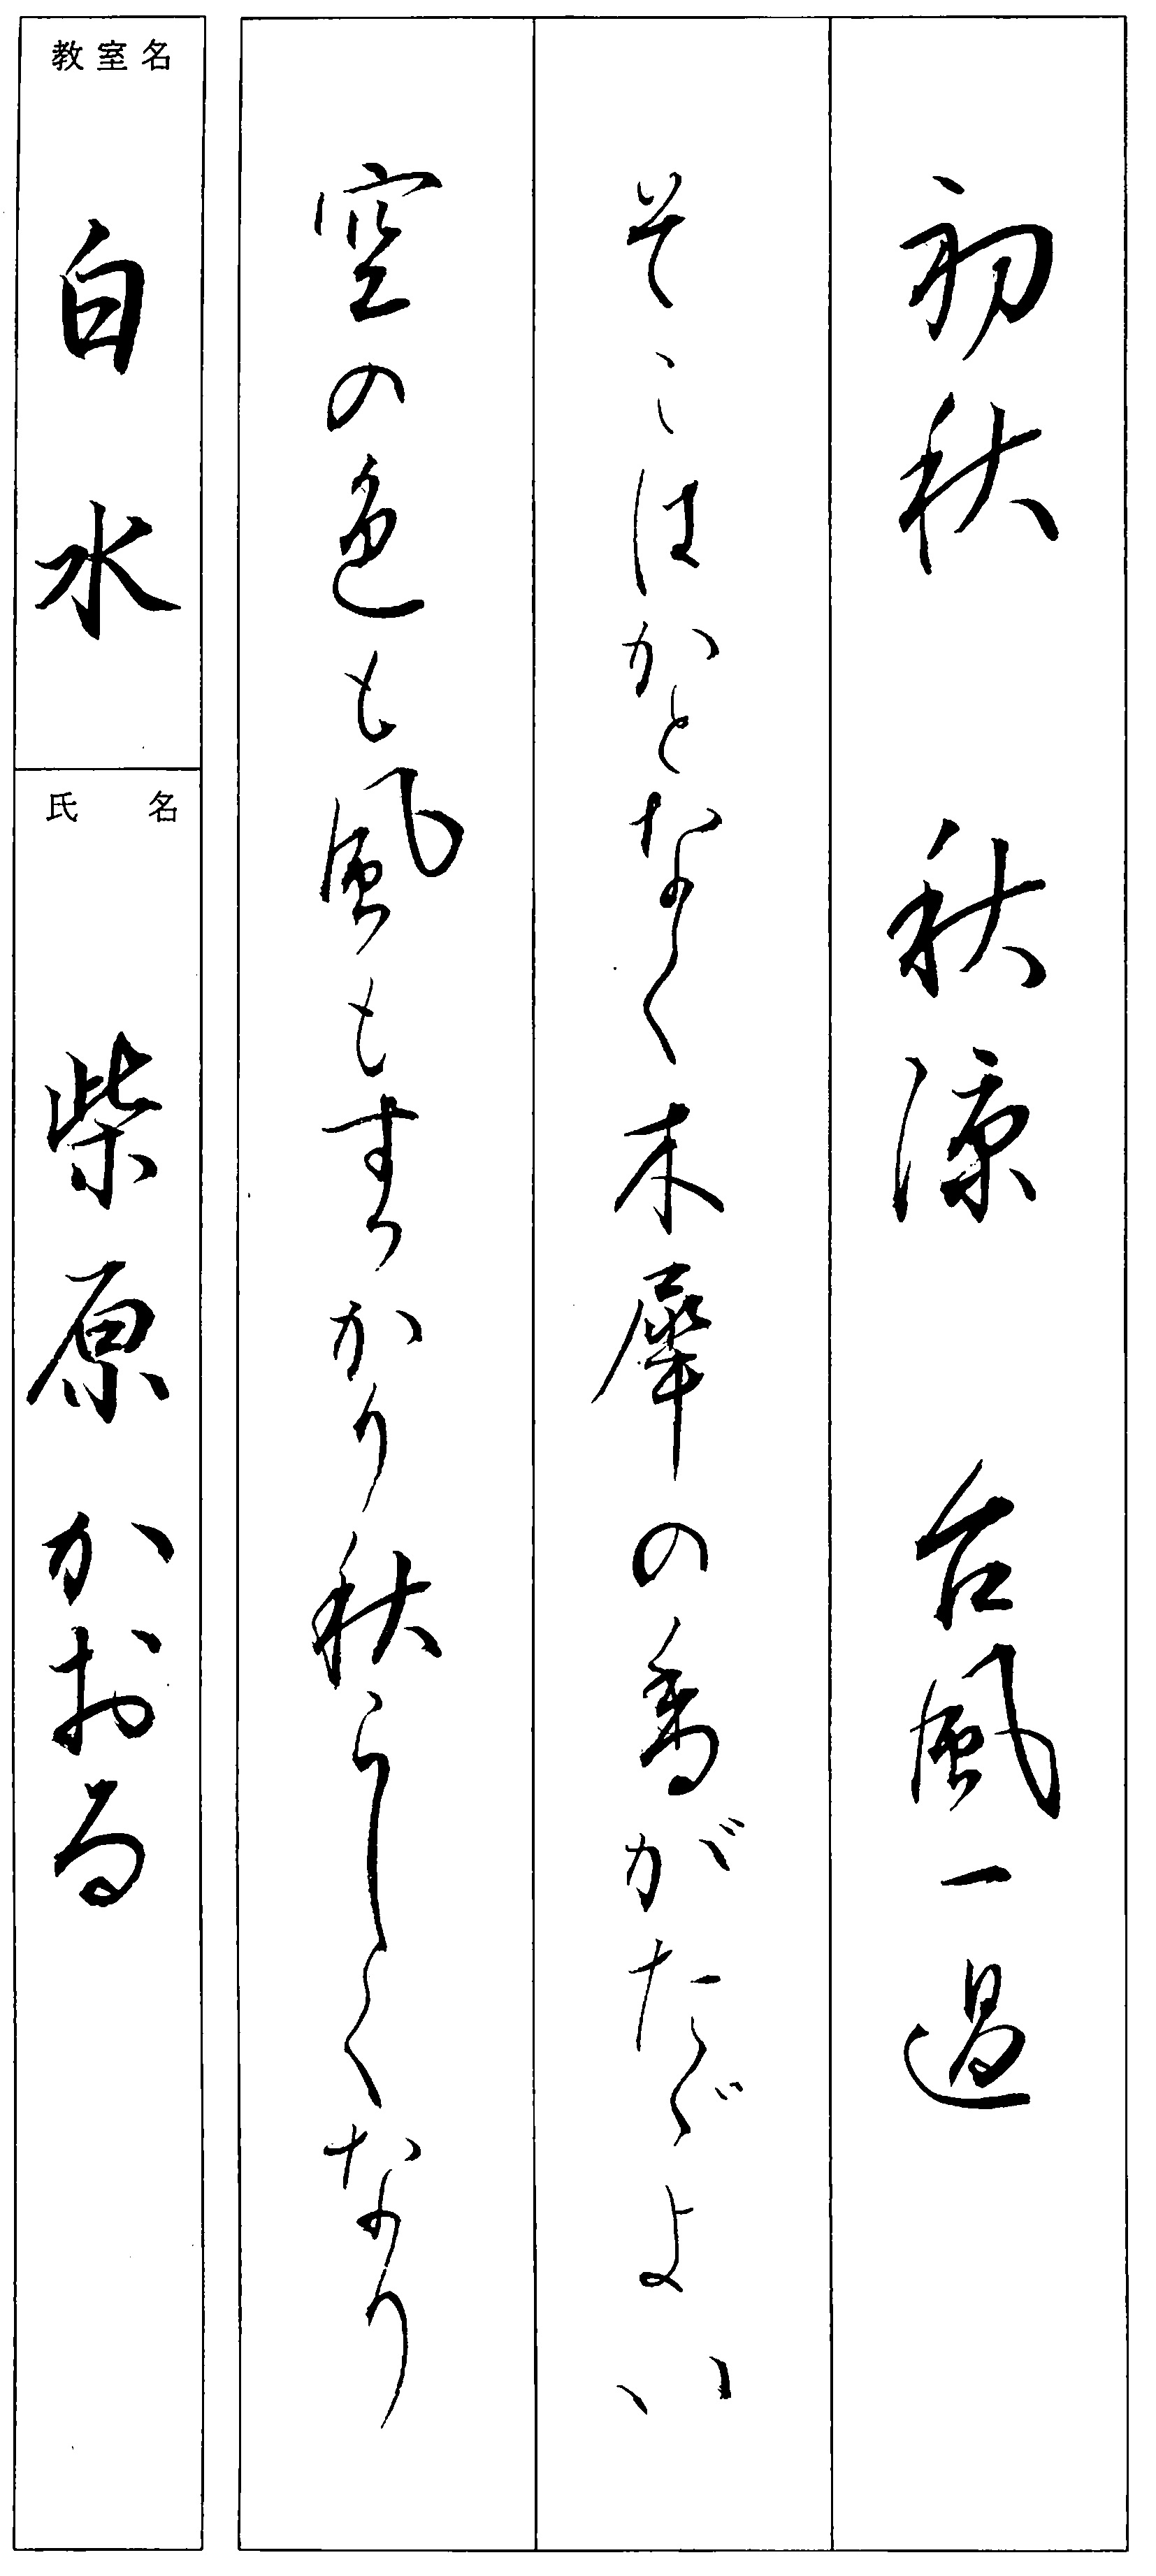 初秋 秋涼 台風一過
そこはかとなく木犀の香がたゞよい
空の色も風もすっかり秋らしくなり
教室名
白水
氏名
柴原かおる